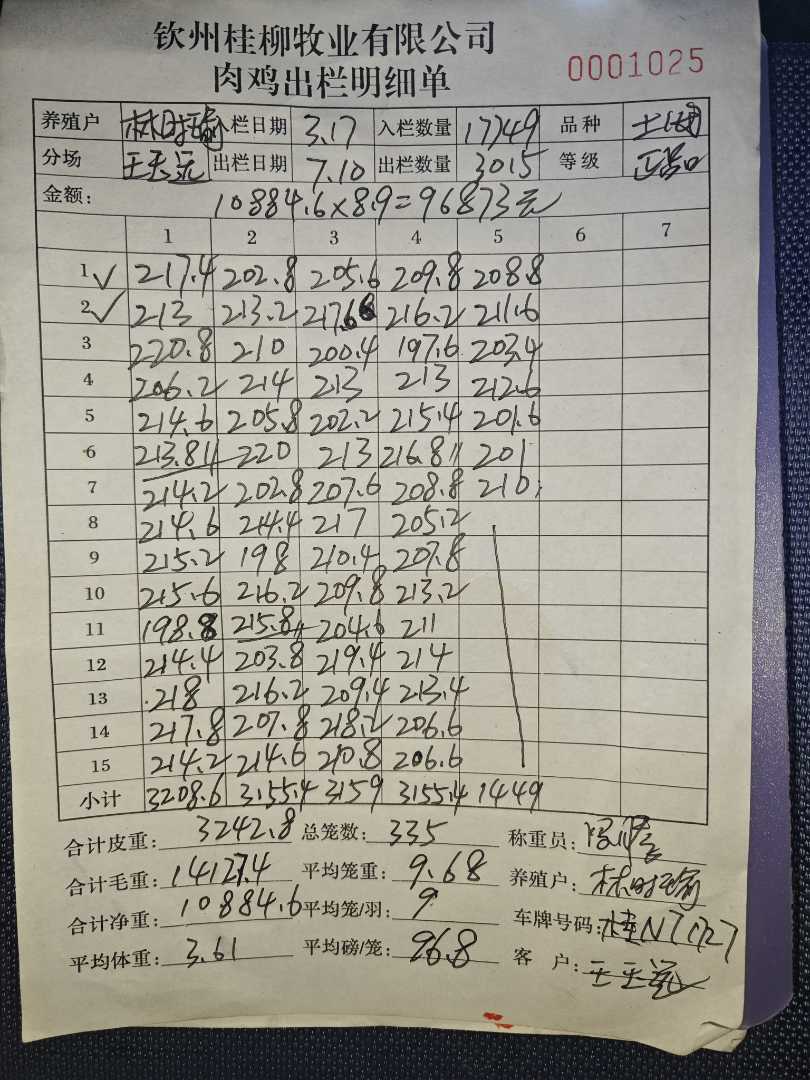 钦州桂柳牧业有限公司
肉鸡出栏明细单 0001025
养殖户 林时瑜 入栏日期 3.17 入栏数量 17749 品种 土
分场 王天远 出栏日期 7.10 出栏数量 3015 等级 正品
金额: 10884.6×8.9=96873元
1 2 3 4 5 6 7
1 ✓ 217.4 202.8 205.6 209.8 208.8
2 ✓ 213 213.2 217.6 216.2 211.6
3 220.8 210 200.4 197.6 203.4
4 206.2 214 213 213 212.6
5 214.6 205.8 202.2 215.4 201.6
6 213.8 220 213 216.8 201
7 214.2 202.8 207.6 208.8 210
8 214.6 214.4 217 205.2
9 215.2 198 210.4 207.8
10 215.6 216.2 209.8 213.2
11 198.8 215.8 204.6 211
12 214.4 203.8 219.4 214
13 218 216.2 209.4 213.4
14 217.8 207.8 218.2 206.6
15 214.2 214.6 210.8 206.6
小计 3208.6 3155.4 3159 3155.4 1449
合计皮重: 3242.8 总笼数: 335 称重员:
合计毛重: 14127.4 平均笼重: 9.68 养殖户: 林时瑜
合计净重: 10884.6 平均笼/羽: 9 车牌号码: 桂N
平均体重: 3.61 平均磅/笼: 96.8 客户: 王天远